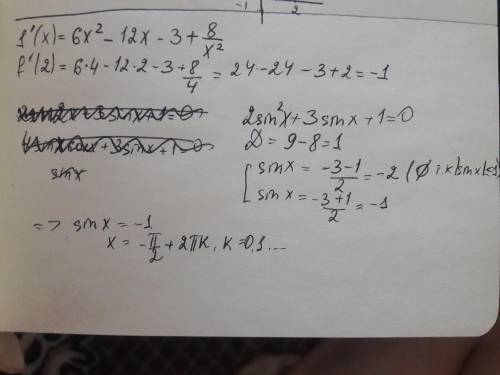 -1 2
f'(x) = 6x² - 12x - 3 + 8/x²
f'(2) = 6·4 - 12·2 - 3 + 8/4 = 24 - 24 - 3 + 2 = -1
2sin²x + 3sinx + 1 = 0
D = 9 - 8 = 1
[ sinx = (-3-1)/2 = -2 (∅ т.к |sinx|≤1)
sinx = (-3+1)/2 = -1
sinx
=> sinx = -1
x = -π/2 + 2πk, k = 0,1...